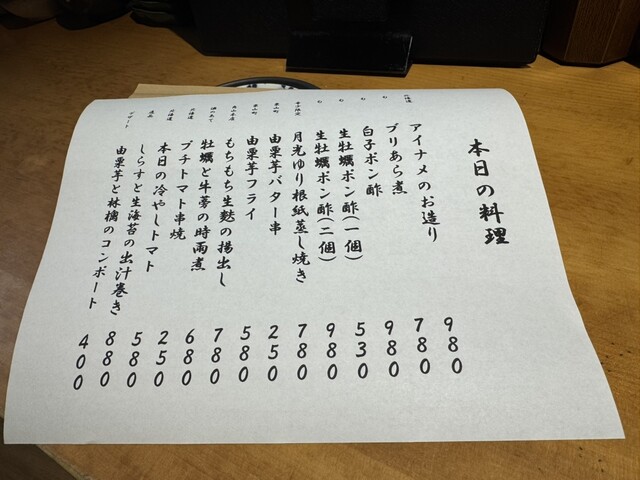 本日の料理
アイナメのお造り 980
ブリあら煮 780
白子ポン酢 980
生牡蠣ポン酢(一個) 530
生牡蠣ポン酢(二個) 980
月光ゆり根紙蒸し焼き 780
由栗芋バター串 250
由栗芋フライ 580
もちもち生麩の揚出し 780
牡蠣と牛蒡の時雨煮 680
北海道 プチトマト串焼 250
北海道 本日の冷やしトマト 580
しらすと生海苔の出汁巻き 880
デザート 由栗芋と林檎のコンポート 400